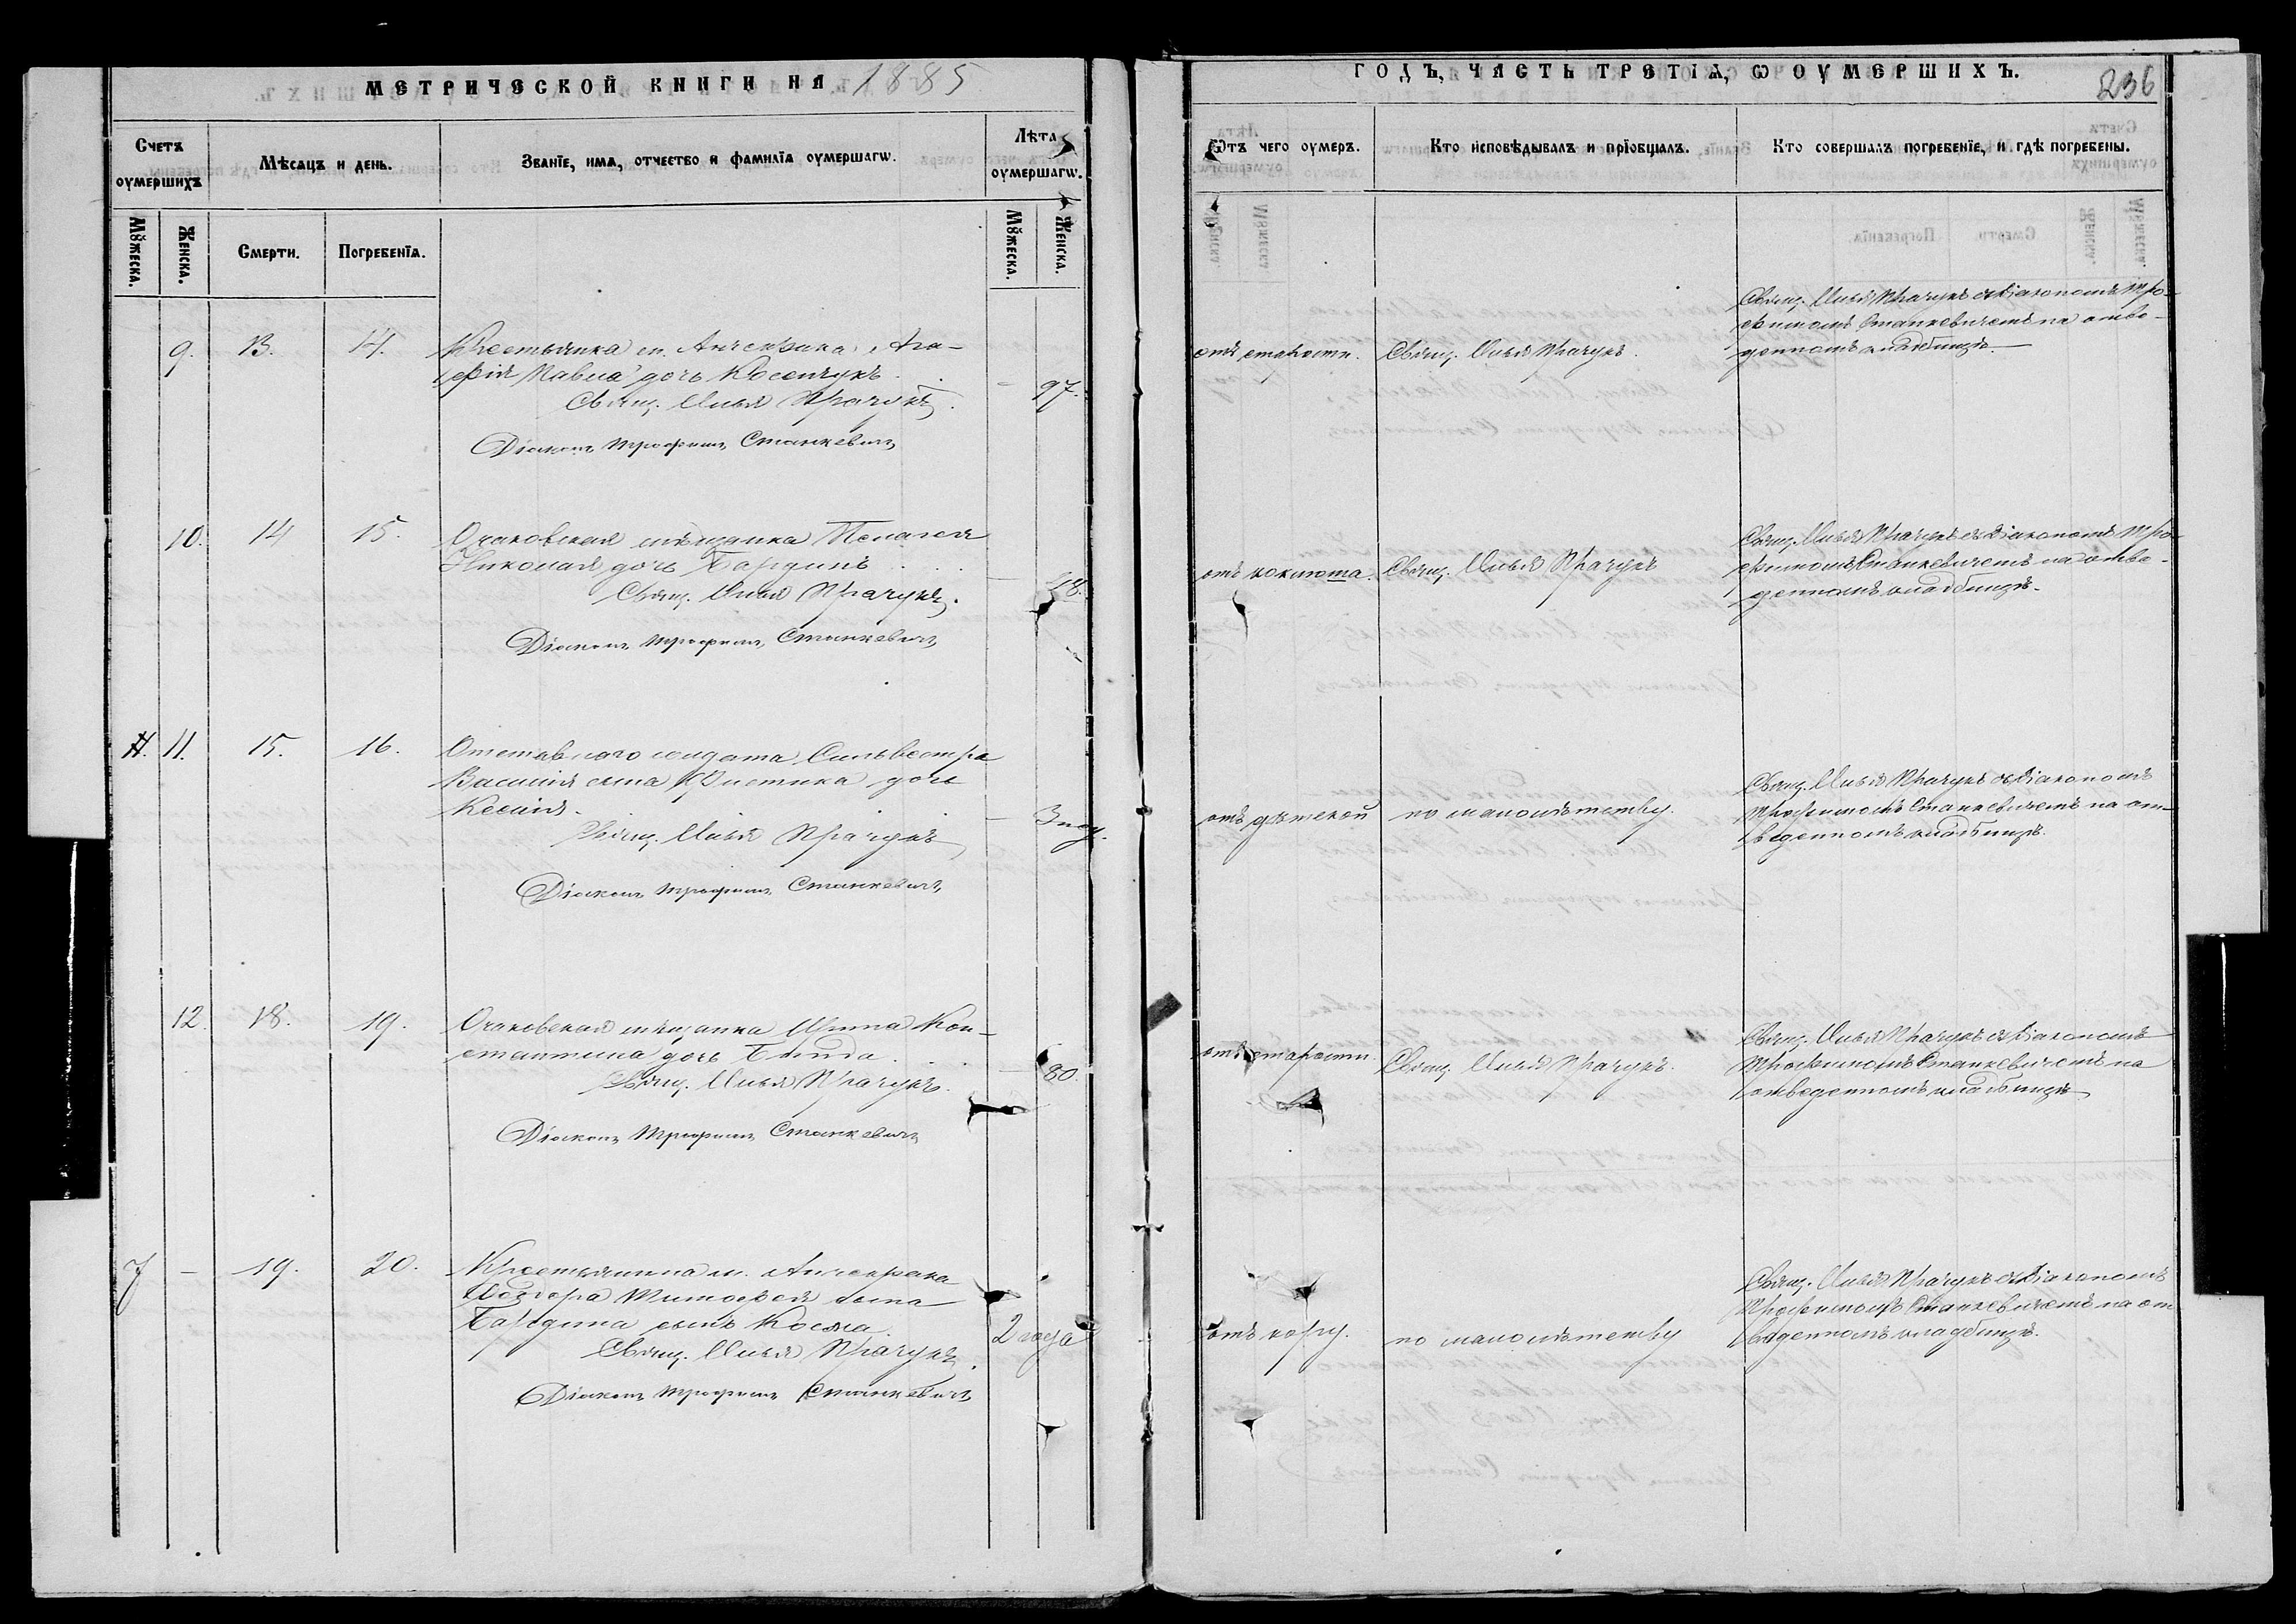 МЕТРИЧЕСКОЙ КНИГИ НА 1885
ГОДЪ, ЧАСТЬ ТРЕТІѦ, Ѡ ОУМЕРШИХЪ.
236
Счетъ оумершихъ
Мѣсяцъ и день.
Званїе, имѧ, отчество и фамилїа оумершагѡ.
Лѣта оумершагѡ.
Ѿтъ чего оумеръ.
Кто исповѣдывалъ и прїобщалъ.
Кто совершалъ погребенїе, и гдѣ погребены.
Мꙋжеска.
Женска.
Смерти.
Погребенїа.
Мꙋжеска.
Женска.
9. 13. 14.
Крестьянка с. Анчекрака Ага-
фія Павла дочь Косенчукъ
Свящ. Илья Прачукъ.
Діаконъ Трофимъ Станкевичъ
— 97.
отъ старости.
Свящ. Илья Прачукъ.
Свящ. Илья Прачукъ съ Діакономъ Тро-
фимомъ Станкевичемъ на отве-
денномъ кладбищѣ.
10. 14 15.
Очаковская мѣщанка Пелагея
Николая дочь Бардинъ
Свящ. Илья Прачукъ.
Діаконъ Трофимъ Станкевичъ
отъ коклюта.
Свящ. Илья Прачукъ
Свящ. Илья Прачукъ съ Діакономъ Тро-
фимомъ Станкевичемъ на отве-
денномъ кладбищѣ.
11. 15. 16.
Отставнаго солдата Сильвестра
Василія сына дочь
Ксенія.
Свящ. Илья Прачукъ
Діаконъ Трофимъ Станкевичъ
— 3 нед.
отъ дѣтской
по малолѣтству.
Свящ. Илья Прачукъ съ Діакономъ
Трофимомъ Станкевичемъ на от-
веденномъ кладбищѣ.
12. 18. 19.
Очаковская мѣщанка Ирина Кон-
стантина дочь
Свящ. Илья Прачукъ.
Діаконъ Трофимъ Станкевичъ
— 80.
отъ старости.
Свящ. Илья Прачукъ.
Свящ. Илья Прачукъ съ Діакономъ
Трофимомъ Станкевичемъ на
отведенномъ кладбищѣ
7 — 19. 20.
Крестьянина с. Анчекрака
Ѳеодора Тимофея сына
Бардина сынъ Косма.
Свящ. Илья Прачукъ.
Діаконъ Трофимъ Станкевичъ
2 года
отъ кору.
по малолѣтству
Свящ. Илья Прачукъ съ Діакономъ
Трофимомъ Станкевичемъ на от
веденномъ кладбищѣ.